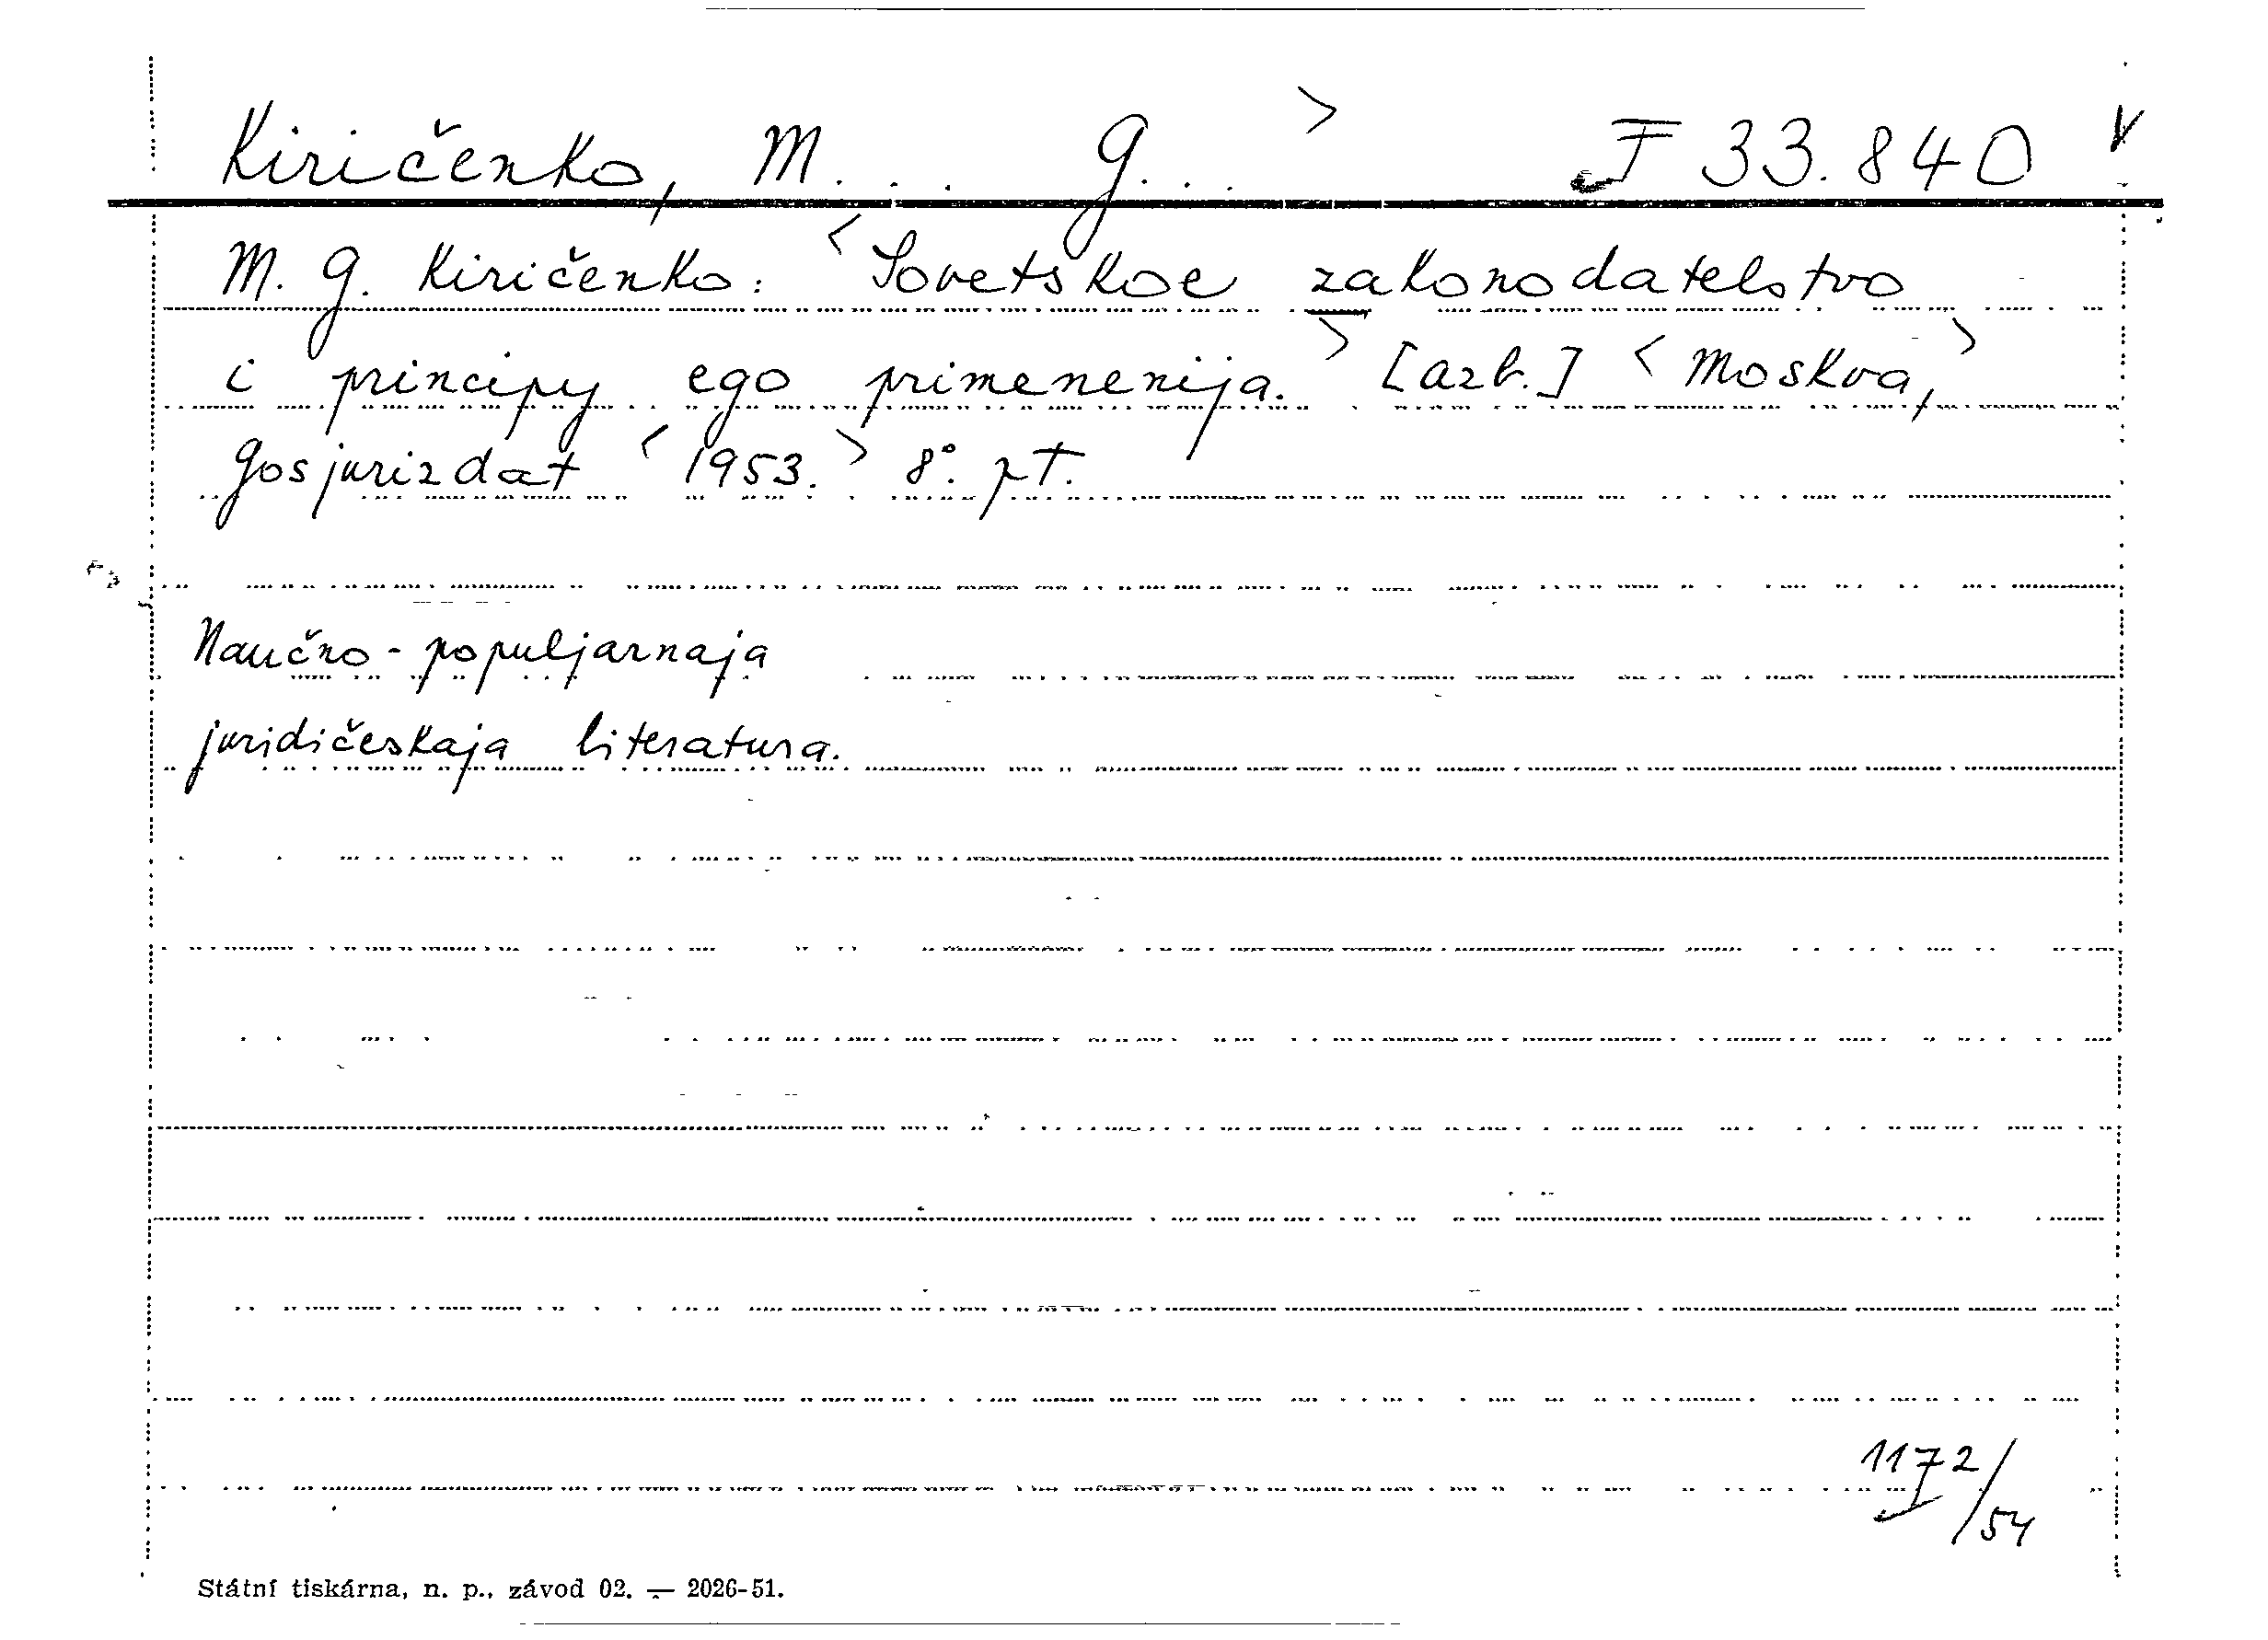 Kiričenko, M... G... > F 33.840 V
M. G. Kiričenko: < Sovetskoe zakonodatelstvo
i principy ego primenenija. > [azb.] < Moskva, >
Gosjurizdat < 1953. > 8°. pt.
Naučno-populjarnaja
juridičeskaja literatura.
1172/54
Státní tiskárna, n. p., závod 02. — 2026-51.